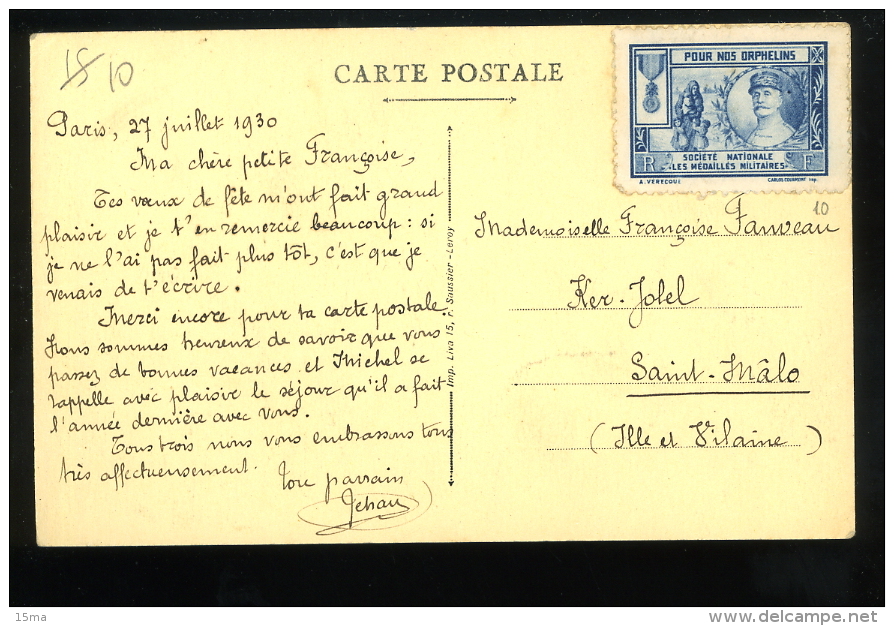 15 10
CARTE POSTALE
POUR NOS ORPHELINS
R F
SOCIÉTÉ NATIONALE
"LES MÉDAILLÉS MILITAIRES"
A. VERECQUE
10
Paris, 27 juillet 1930
Ma chère petite Françoise,
Tes vœux de fête m'ont fait grand
plaisir et je t'en remercie beaucoup : si
je ne l'ai pas fait plus tôt, c'est que je
venais de t'écrire.
Merci encore pour ta carte postale.
Nous sommes heureux de savoir que vous
passez de bonnes vacances et Michel se
rappelle avec plaisir le séjour qu'il a fait
l'année dernière avec vous.
Tous trois nous vous embrassons tous
très affectueusement.
Ton parrain
Jehan
Imp. Liva 15, r. Saussier-Leroy
Mademoiselle Françoise Fauveau
Ker-Jolel
Saint-Mâlo
(Ille et Vilaine)
15ma
delcampe.net